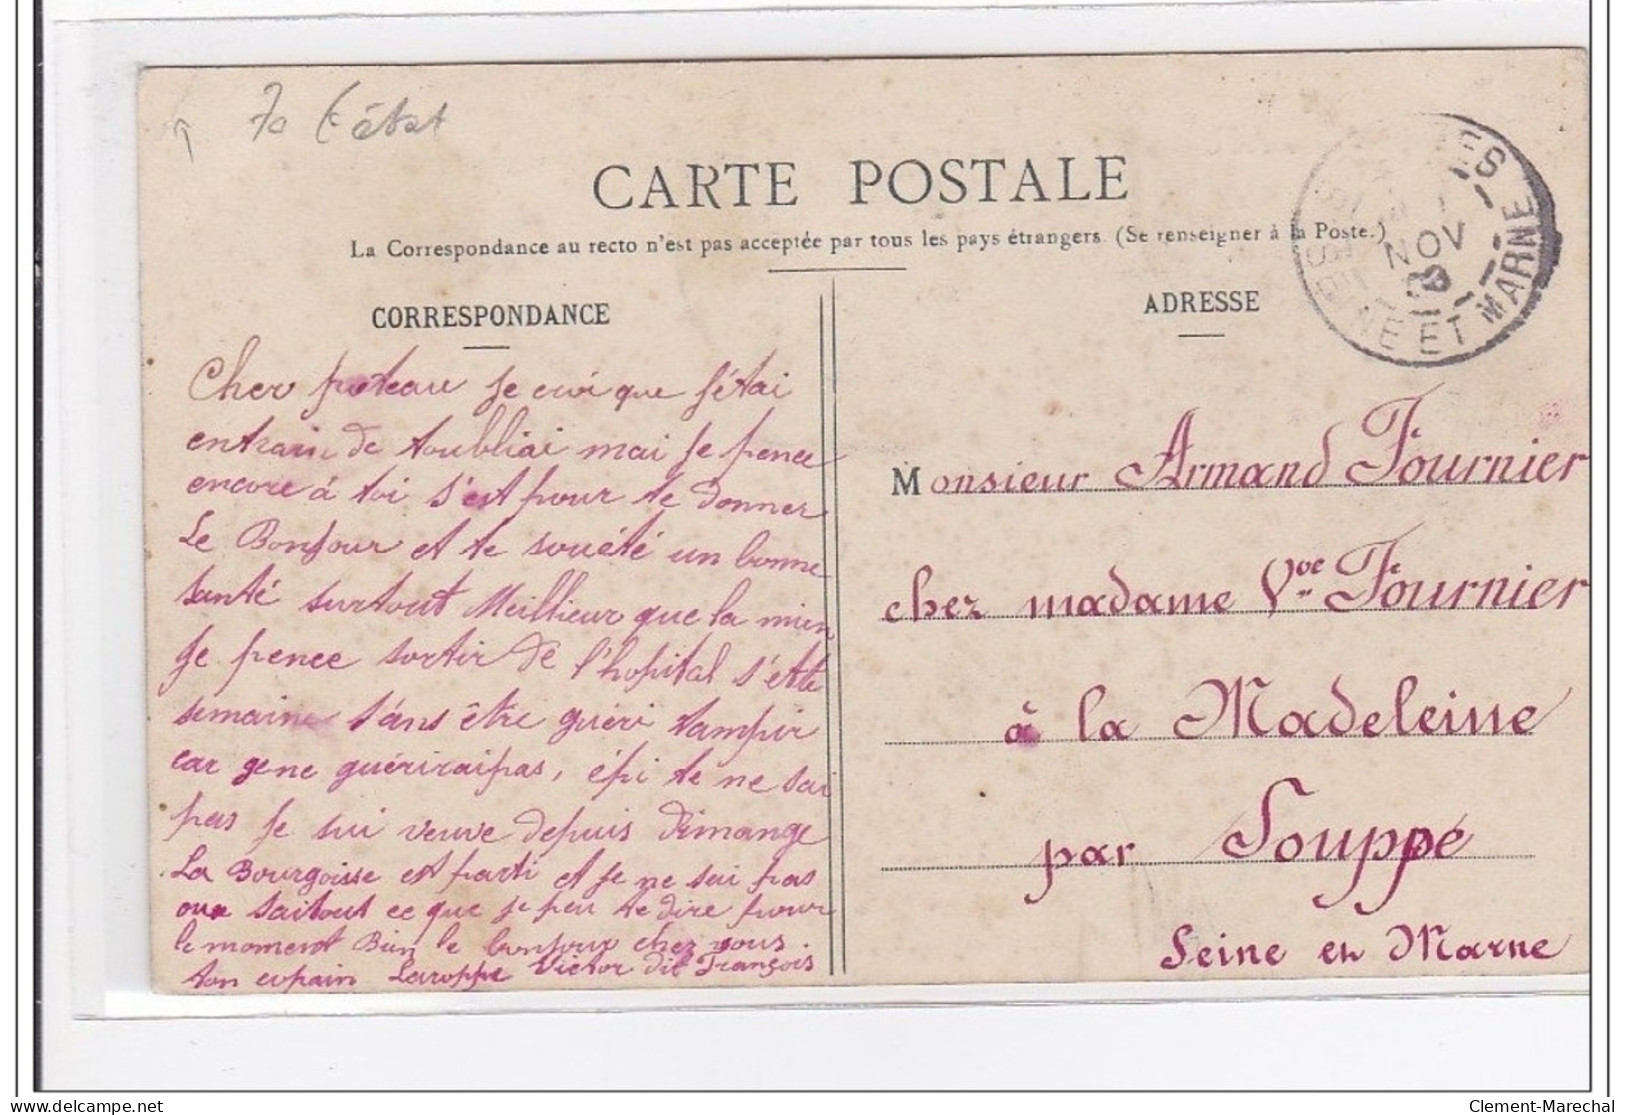 70 € état
CARTE POSTALE
La Correspondance au recto n'est pas acceptée par tous les pays étrangers. (Se renseigner à la Poste.)
NOV
SEINE ET MARNE
CORRESPONDANCE
ADRESSE
Cher poteau je croi que j'étai
entrain de toubliai mai je pence
encore á toi s'est pour te donner
Le Bonjour et te souété un bonne
santé surtout Meillieur que la mien
je pence sortir de l'hopital s'ette
semaine sáns être guéri tampir
car gene guérirai pas, épi te ne sai
pas je sui veuve depuis dimange
La Bourgoisse est parti et je ne sai pas
oux saitout ce que je peu te dire pour
le moment Bien le bonjour chez vous.
ton copain Laroppe Victor dit François
Monsieur Armand Fournier
chez madame Vve Fournier
à la Madeleine
par Souppe
Seine en Marne
Clement-Marechal